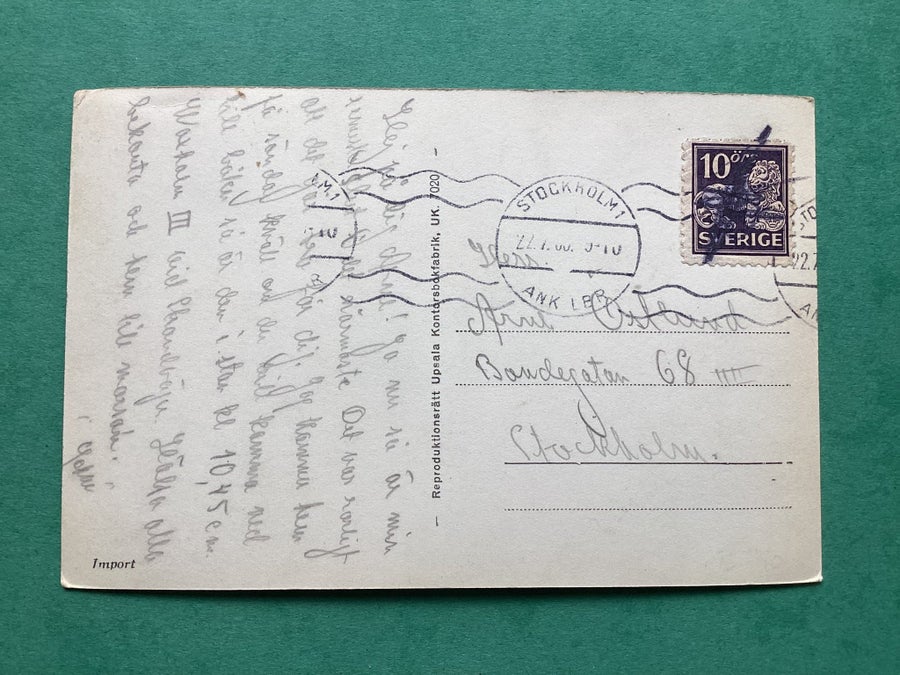 Hej på dig Arne! Ja nu så är min
det närmaste Det var roligt
att det går bra för dig. jag kommer hem
på söndag kväll om du vill komma ned
till båten så är den i stan kl 10,45 em.
Waxholm III vid Strandvägen. Hälsa alla
bekanta och hem till morsan.
Import
— Reproduktionsrätt Upsala Kontorsbokfabrik, UK. 7020 —
M. 1
-10
STOCKHOLM 1
22.7. 9-10
ANK 1 BR
10 ÖRE
SVERIGE
STO
22.7
AN
Herr.
Arne Östlund
Bondegatan 68 IIII
Stockholm.